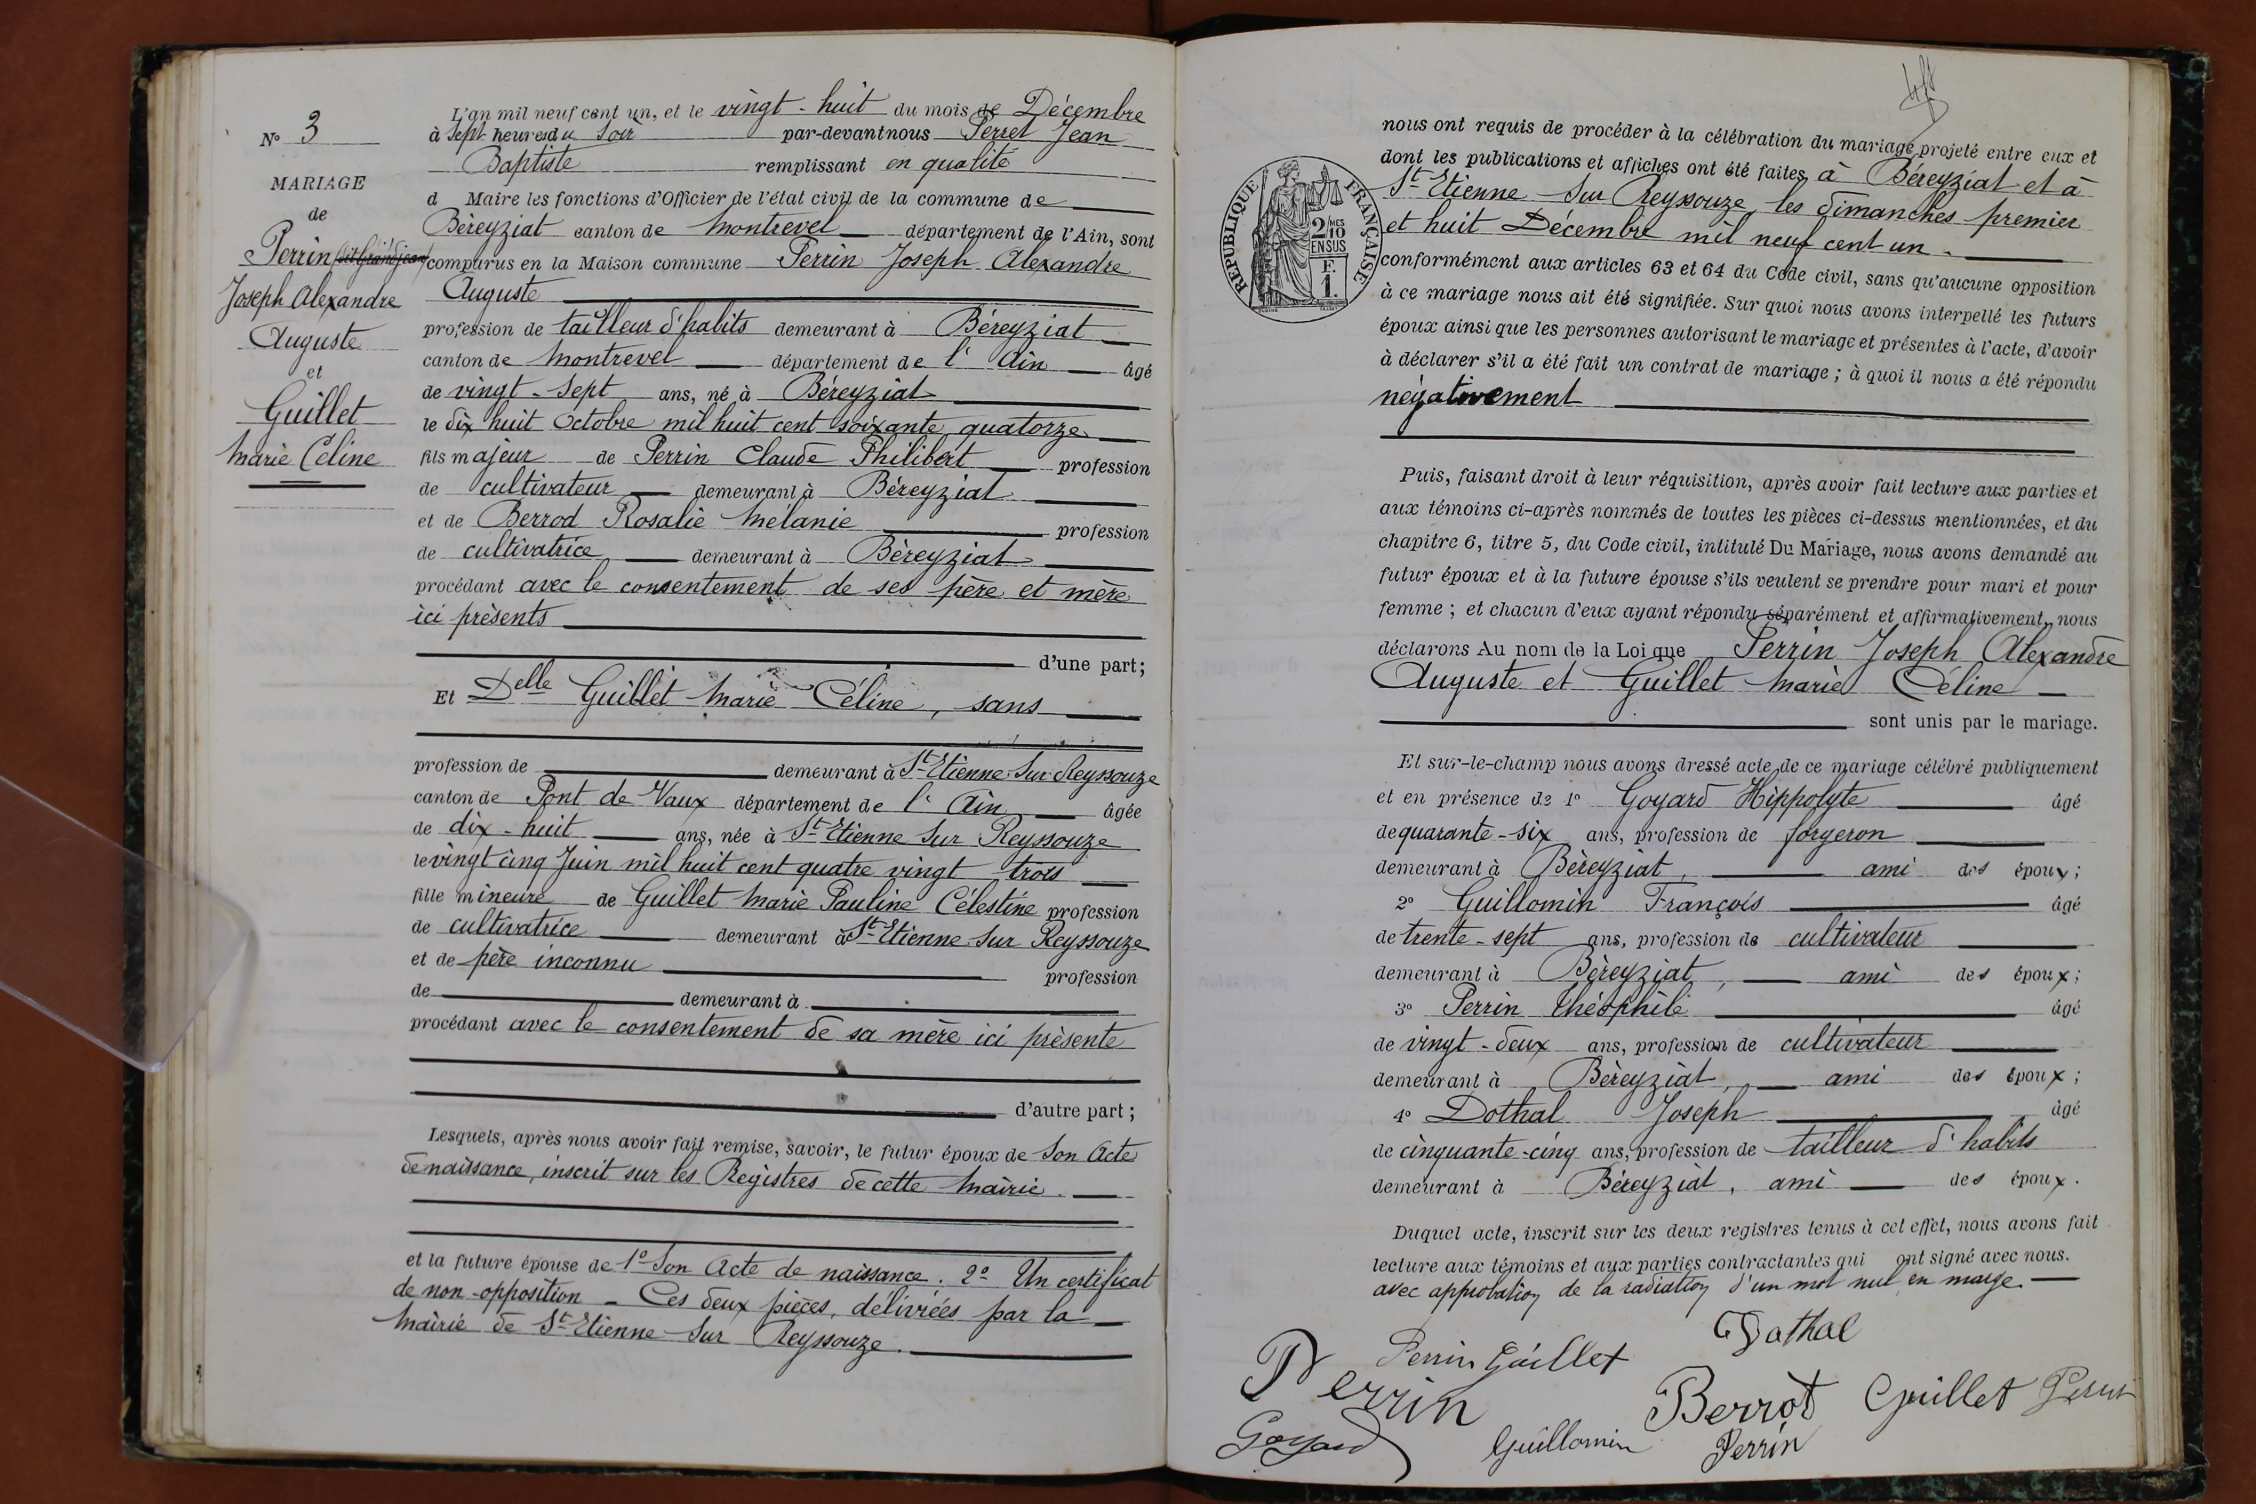 N° 3
MARIAGE
de
Perrin
Joseph Alexandre
Auguste
et
Guillet
Marie Céline
L'an mil neuf cent un, et le vingt-huit du mois de Décembre
à sept heures du soir par-devant nous Perret Jean
Baptiste remplissant en qualité
d Maire les fonctions d'Officier de l'état civil de la commune de
Béreyziat canton de Montrevel département de l'Ain, sont
comparus en la Maison commune Perrin Joseph Alexandre
Auguste
profession de tailleur d'habits demeurant à Béreyziat
canton de Montrevel département de l'Ain âgé
de vingt-sept ans, né à Béreyziat
le dix huit Octobre mil huit cent soixante quatorze
fils majeur de Perrin Claude Philibert profession
de cultivateur demeurant à Béreyziat
et de Berrod Rosalie Mélanie profession
de cultivatrice demeurant à Béreyziat
procédant avec le consentement de ses père et mère
ici présents
d'une part;
Et Delle Guillet Marie Céline, sans
profession de demeurant à St Etienne sur Reyssouze
canton de Pont de Vaux département de l'Ain âgée
de dix-huit ans, née à St Etienne sur Reyssouze
le vingt cinq Juin mil huit cent quatre vingt trois
fille mineure de Guillet Marie Pauline Célestine profession
de cultivatrice demeurant à St Etienne sur Reyssouze
et de père inconnu profession
de demeurant à
procédant avec le consentement de sa mère ici présente
d'autre part;
Lesquels, après nous avoir fait remise, savoir, le futur époux de son Acte
de naissance, inscrit sur les Registres de cette Mairie.
et la future épouse de 1° Son Acte de naissance. 2° Un certificat
de non-opposition - Ces deux pièces, délivrées par la
Mairie de St Etienne sur Reyssouze.
nous ont requis de procéder à la célébration du mariage projeté entre eux et
dont les publications et affiches ont été faites à Béreyziat et à
St Etienne sur Reyssouze les dimanches premier
et huit Décembre mil neuf cent un.
REPUBLIQUE FRANÇAISE
2/10 MES
EN SUS
F.
1.
conformément aux articles 63 et 64 du Code civil, sans qu'aucune opposition
à ce mariage nous ait été signifiée. Sur quoi nous avons interpellé les futurs
époux ainsi que les personnes autorisant le mariage et présentes à l'acte, d'avoir
à déclarer s'il a été fait un contrat de mariage; à quoi il nous a été répondu
négativement
Puis, faisant droit à leur réquisition, après avoir fait lecture aux parties et
aux témoins ci-après nommés de toutes les pièces ci-dessus mentionnées, et du
chapitre 6, titre 5, du Code civil, intitulé Du Mariage, nous avons demandé au
futur époux et à la future épouse s'ils veulent se prendre pour mari et pour
femme; et chacun d'eux ayant répondu séparément et affirmativement, nous
déclarons Au nom de la Loi que Perrin Joseph Alexandre
Auguste et Guillet Marie Céline
sont unis par le mariage.
Et sur-le-champ nous avons dressé acte de ce mariage célébré publiquement
et en présence de 1° Goyard Hippolyte âgé
de quarante-six ans, profession de forgeron
demeurant à Béreyziat, ami des époux;
2° Guillomin François âgé
de trente-sept ans, profession de cultivateur
demeurant à Béreyziat, ami des époux;
3° Perrin Théophile âgé
de vingt-deux ans, profession de cultivateur
demeurant à Béreyziat, ami des époux;
4° Dothal Joseph âgé
de cinquante-cinq ans, profession de tailleur d'habits
demeurant à Béreyziat, ami des époux.
Duquel acte, inscrit sur les deux registres tenus à cet effet, nous avons fait
lecture aux témoins et aux parties contractantes qui ont signé avec nous.
avec approbation de la radiation d'un mot nul en marge.
Dothal
Perrin Guillet
Perrin
Berrot Guillet Perret
Goyard Guillomin Perrin